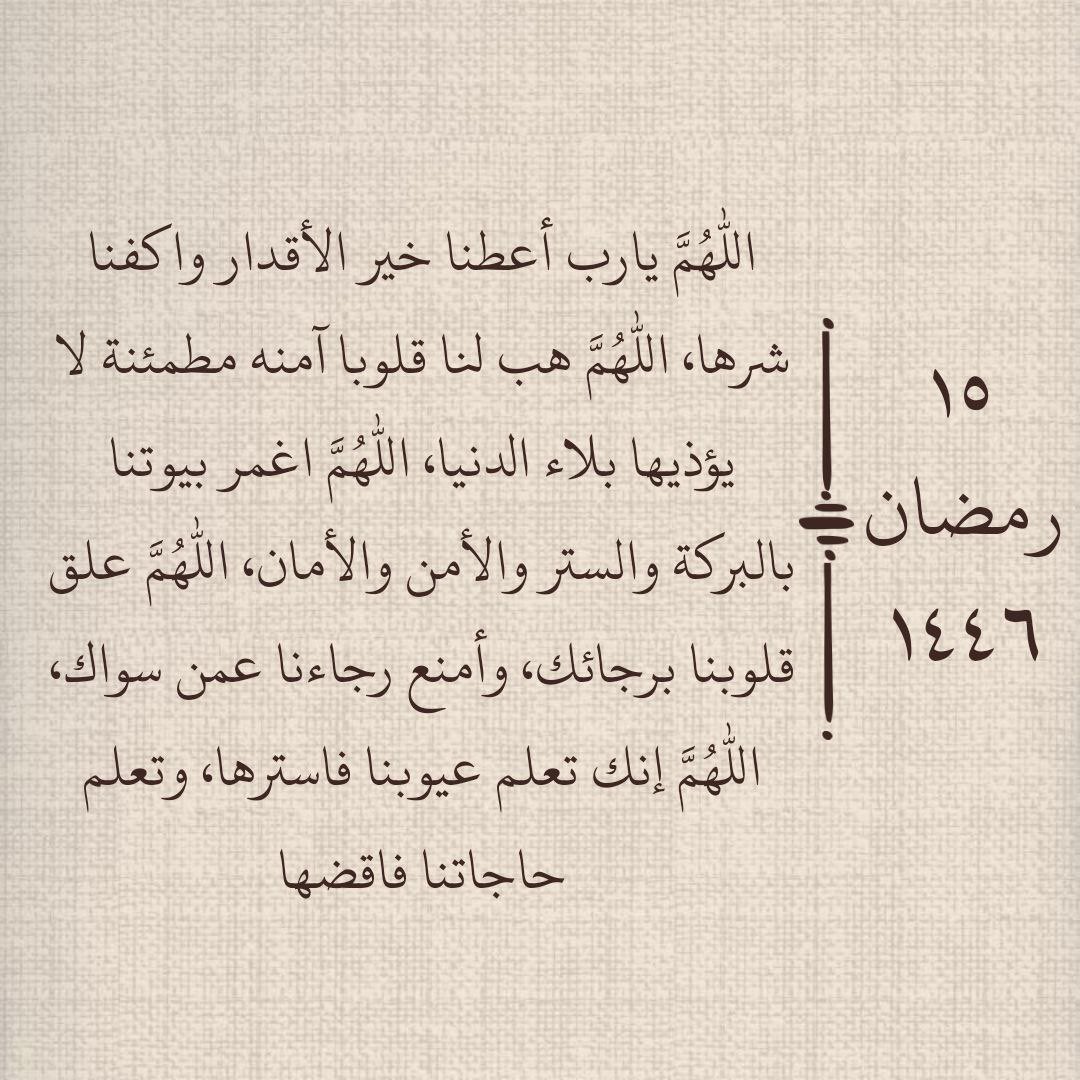 ١٥
رمضان
١٤٤٦
اللّٰهُمَّ يارب أعطنا خير الأقدار واكفنا
شرها، اللّٰهُمَّ هب لنا قلوبا آمنه مطمئنة لا
يؤذيها بلاء الدنيا، اللّٰهُمَّ اغمر بيوتنا
بالبركة والستر والأمن والأمان، اللّٰهُمَّ علق
قلوبنا برجائك، وأمنع رجاءنا عمن سواك،
اللّٰهُمَّ إنك تعلم عيوبنا فاسترها، وتعلم
حاجاتنا فاقضها